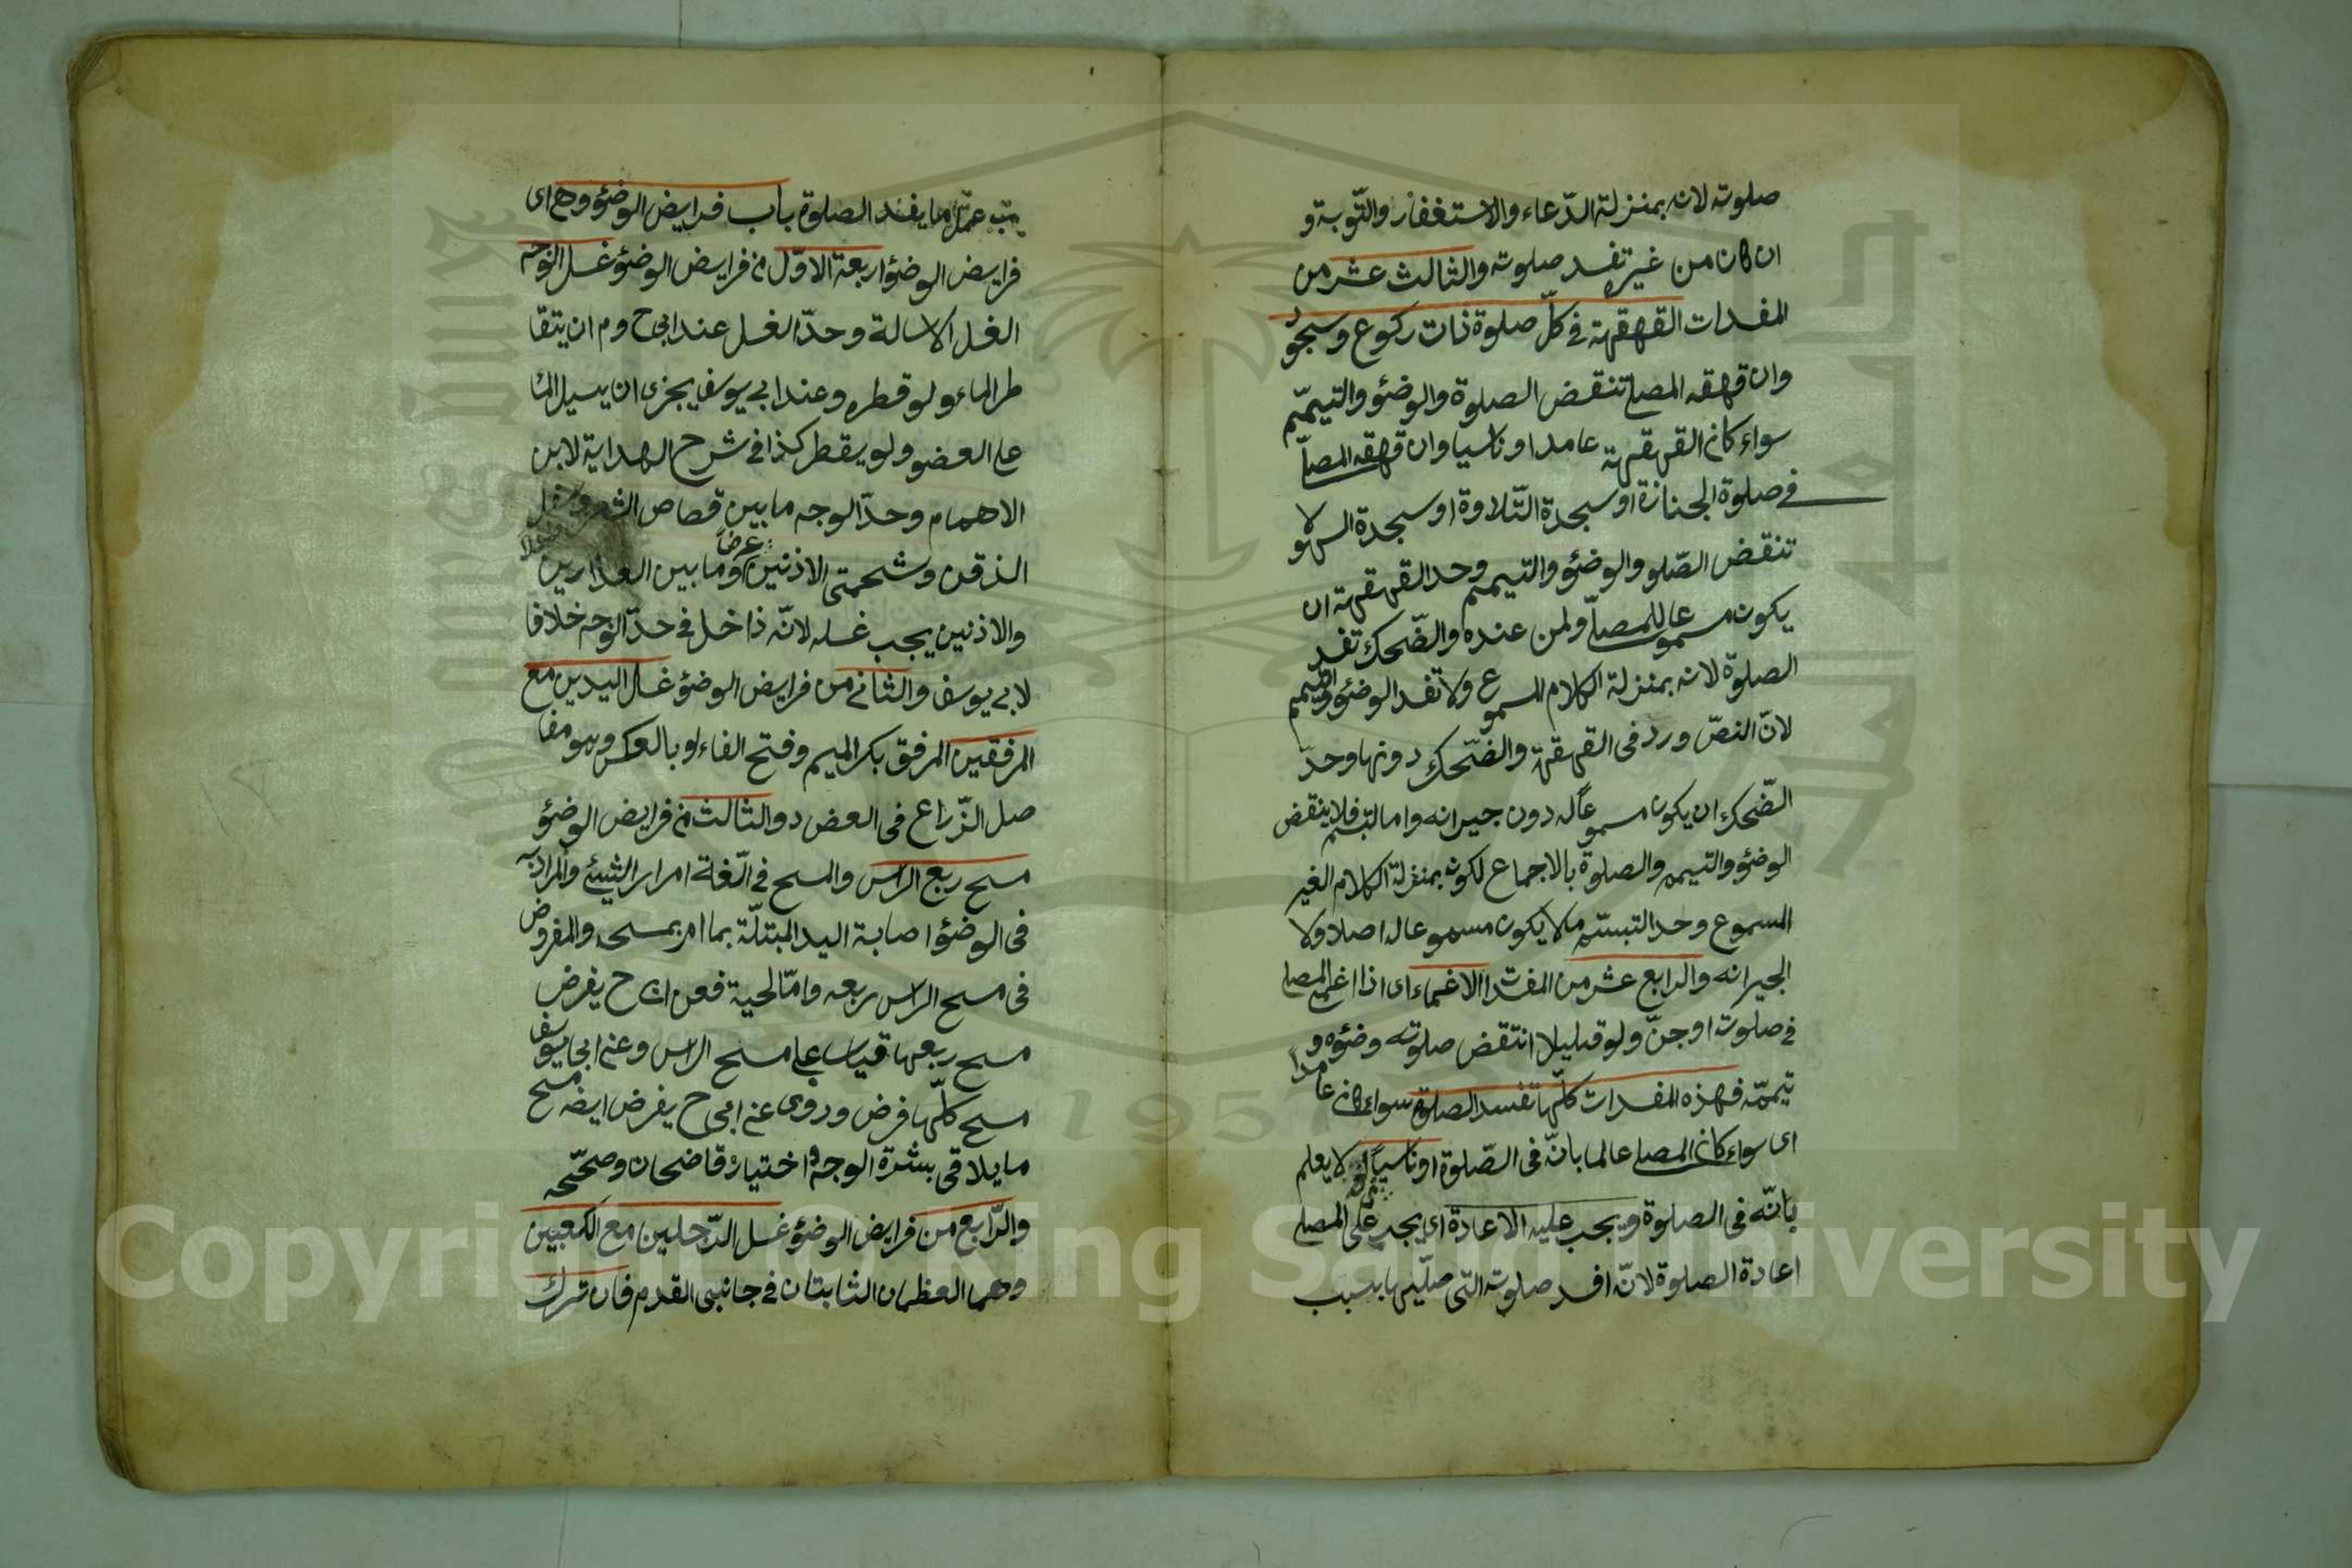 صلوته لانه بمنزلة الدّعاء والاستغفار والتّوبة و
ان كان من غيره تفسد صلوته والثالث عشر من
المفسدات القهقهة فى كلّ صلوة ذات ركوع وسجود
وان قهقه المصلى تنقض الصلوة والوضئو والتيمّم
سواء كان القهقهة عامدا او ناسيا وان قهقه المصلّى
فى صلوة الجنازة او سجدة التّلاوة او سجدة السهو لا
تنقض الصّلو والوضئو والتيمم وحد القهقهة ان
يكون مسموعا للمصلّى ولمن عنده والضّحك تفسد
الصلوة لانه بمنزلة الكلام المسموع ولا تفسد الوضئو والتيمم
لانّ النصّ ورد فى القهقهة والضّحك دونها وحدّ
الضّحك ان يكون مسموعاً له دون جيرانه واما التبسّم فلا ينقض
الوضئو والتيمم والصلوة بالاجماع لكونه بمنزلة الكلام الغير
المسموع وحد التبسّم ما لا يكون مسموعا له اصلا ولا
لجيرانه والرابع عشر من المفسدا الاغماء اى اذا اغمى المصلى
فى صلوته او جنّ ولو قليلا انتقض صلوته وضئوه و
تيممّه فهذه المفسدات كلّها تفسد الصلوة سواء كان عامدا
اى سواء كان المصلى عالما بانّه فى الصّلوة او ناسياً لا يعلم
بانّه فى الصلوة ويجب عليه الاعادة اى يجب على المصلى
اعادة الصلوة لانّه افسد صلوته التى صلّيها بسبب
ما يفسد الصلوة باب فرايض الوضئو وهى اى
فرايض الوضئو اربعة الاوّل من فرايض الوضئو غسل الوجه
الغسل الاسالة وحدّ الغسل عند ابى ح وم ان يتقا
طر الماء ولو قطره وعند ابى يوسف يجزى ان يسيل الما
على العضو ولو يقطر كذا فى شرح الهداية لابن
الاهمام وحدّ الوجه ما بين قصاص الشعر واسفل
الذقن وشحمتى الاذنين عرضا وما بين العذارين
والاذنين يجب غسله لانّه داخل فى حدّ الوجه خلافا
لابى يوسف والثانى من فرايض الوضئو غسل اليدين مع
المرفقين المرفق بكسر الميم وفتح الفاء او بالعكس وهو مفا
صل الذّراع فى العضد والثالث من فرايض الوضئو
مسح ربع الراس والمسح فى الّغة امرار الشيئ والمراد به
فى الوضئو اصابة اليد المبتلّة بما امر بمسحه والمفروض
فى مسح الراس ربعه وامّا لحية فعن ح يفرض
مسح ربعها قياس على مسح الراس وعن ابى يوسف
مسح كلّها فرض وروى عن ابى ح يفرض ايضه مسح
ما يلاقى بشرة الوجه واختياره قاضحان وصحّحه
والرّابع من فرايض الوضئو غسل الرّجلين مع الكعبين
وهما العظمان الثابتان فى جانبى القدم فان ترك
Copyright © King Saud University
1957